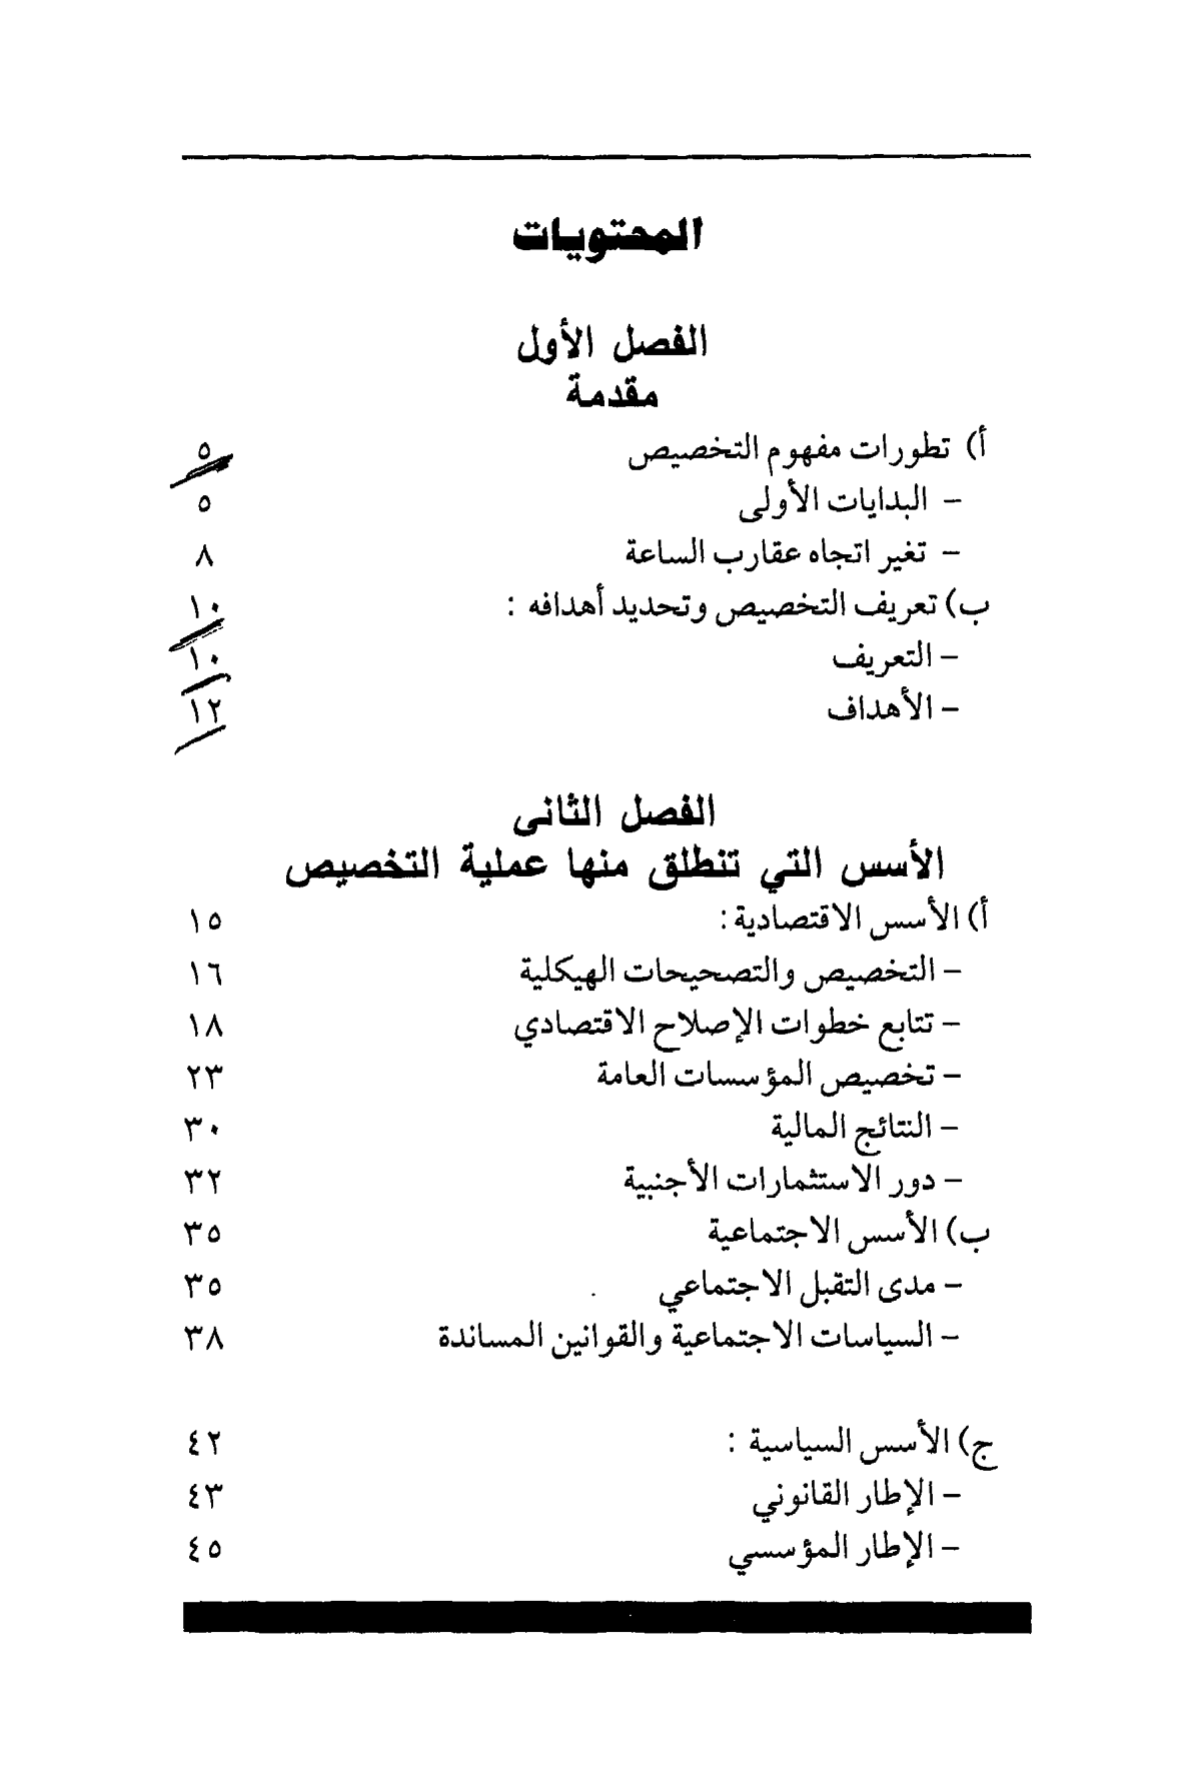 المحتويات
الفصل الأول
مقدمة
أ) تطورات مفهوم التخصيص ٥
– البدايات الأولى ٥
– تغير اتجاه عقارب الساعة ٨
ب) تعريف التخصيص وتحديد أهدافه : ١٠
– التعريف ١٠
– الأهداف ١٢
الفصل الثانى
الأسس التي تنطلق منها عملية التخصيص
أ) الأسس الاقتصادية : ١٥
– التخصيص والتصحيحات الهيكلية ١٦
– تتابع خطوات الإصلاح الاقتصادي ١٨
– تخصيص المؤسسات العامة ٢٣
– النتائج المالية ٣٠
– دور الاستثمارات الأجنبية ٣٢
ب) الأسس الاجتماعية ٣٥
– مدى التقبل الاجتماعي ٣٥
– السياسات الاجتماعية والقوانين المساندة ٣٨
ج) الأسس السياسية : ٤٢
– الإطار القانوني ٤٣
– الإطار المؤسسي ٤٥